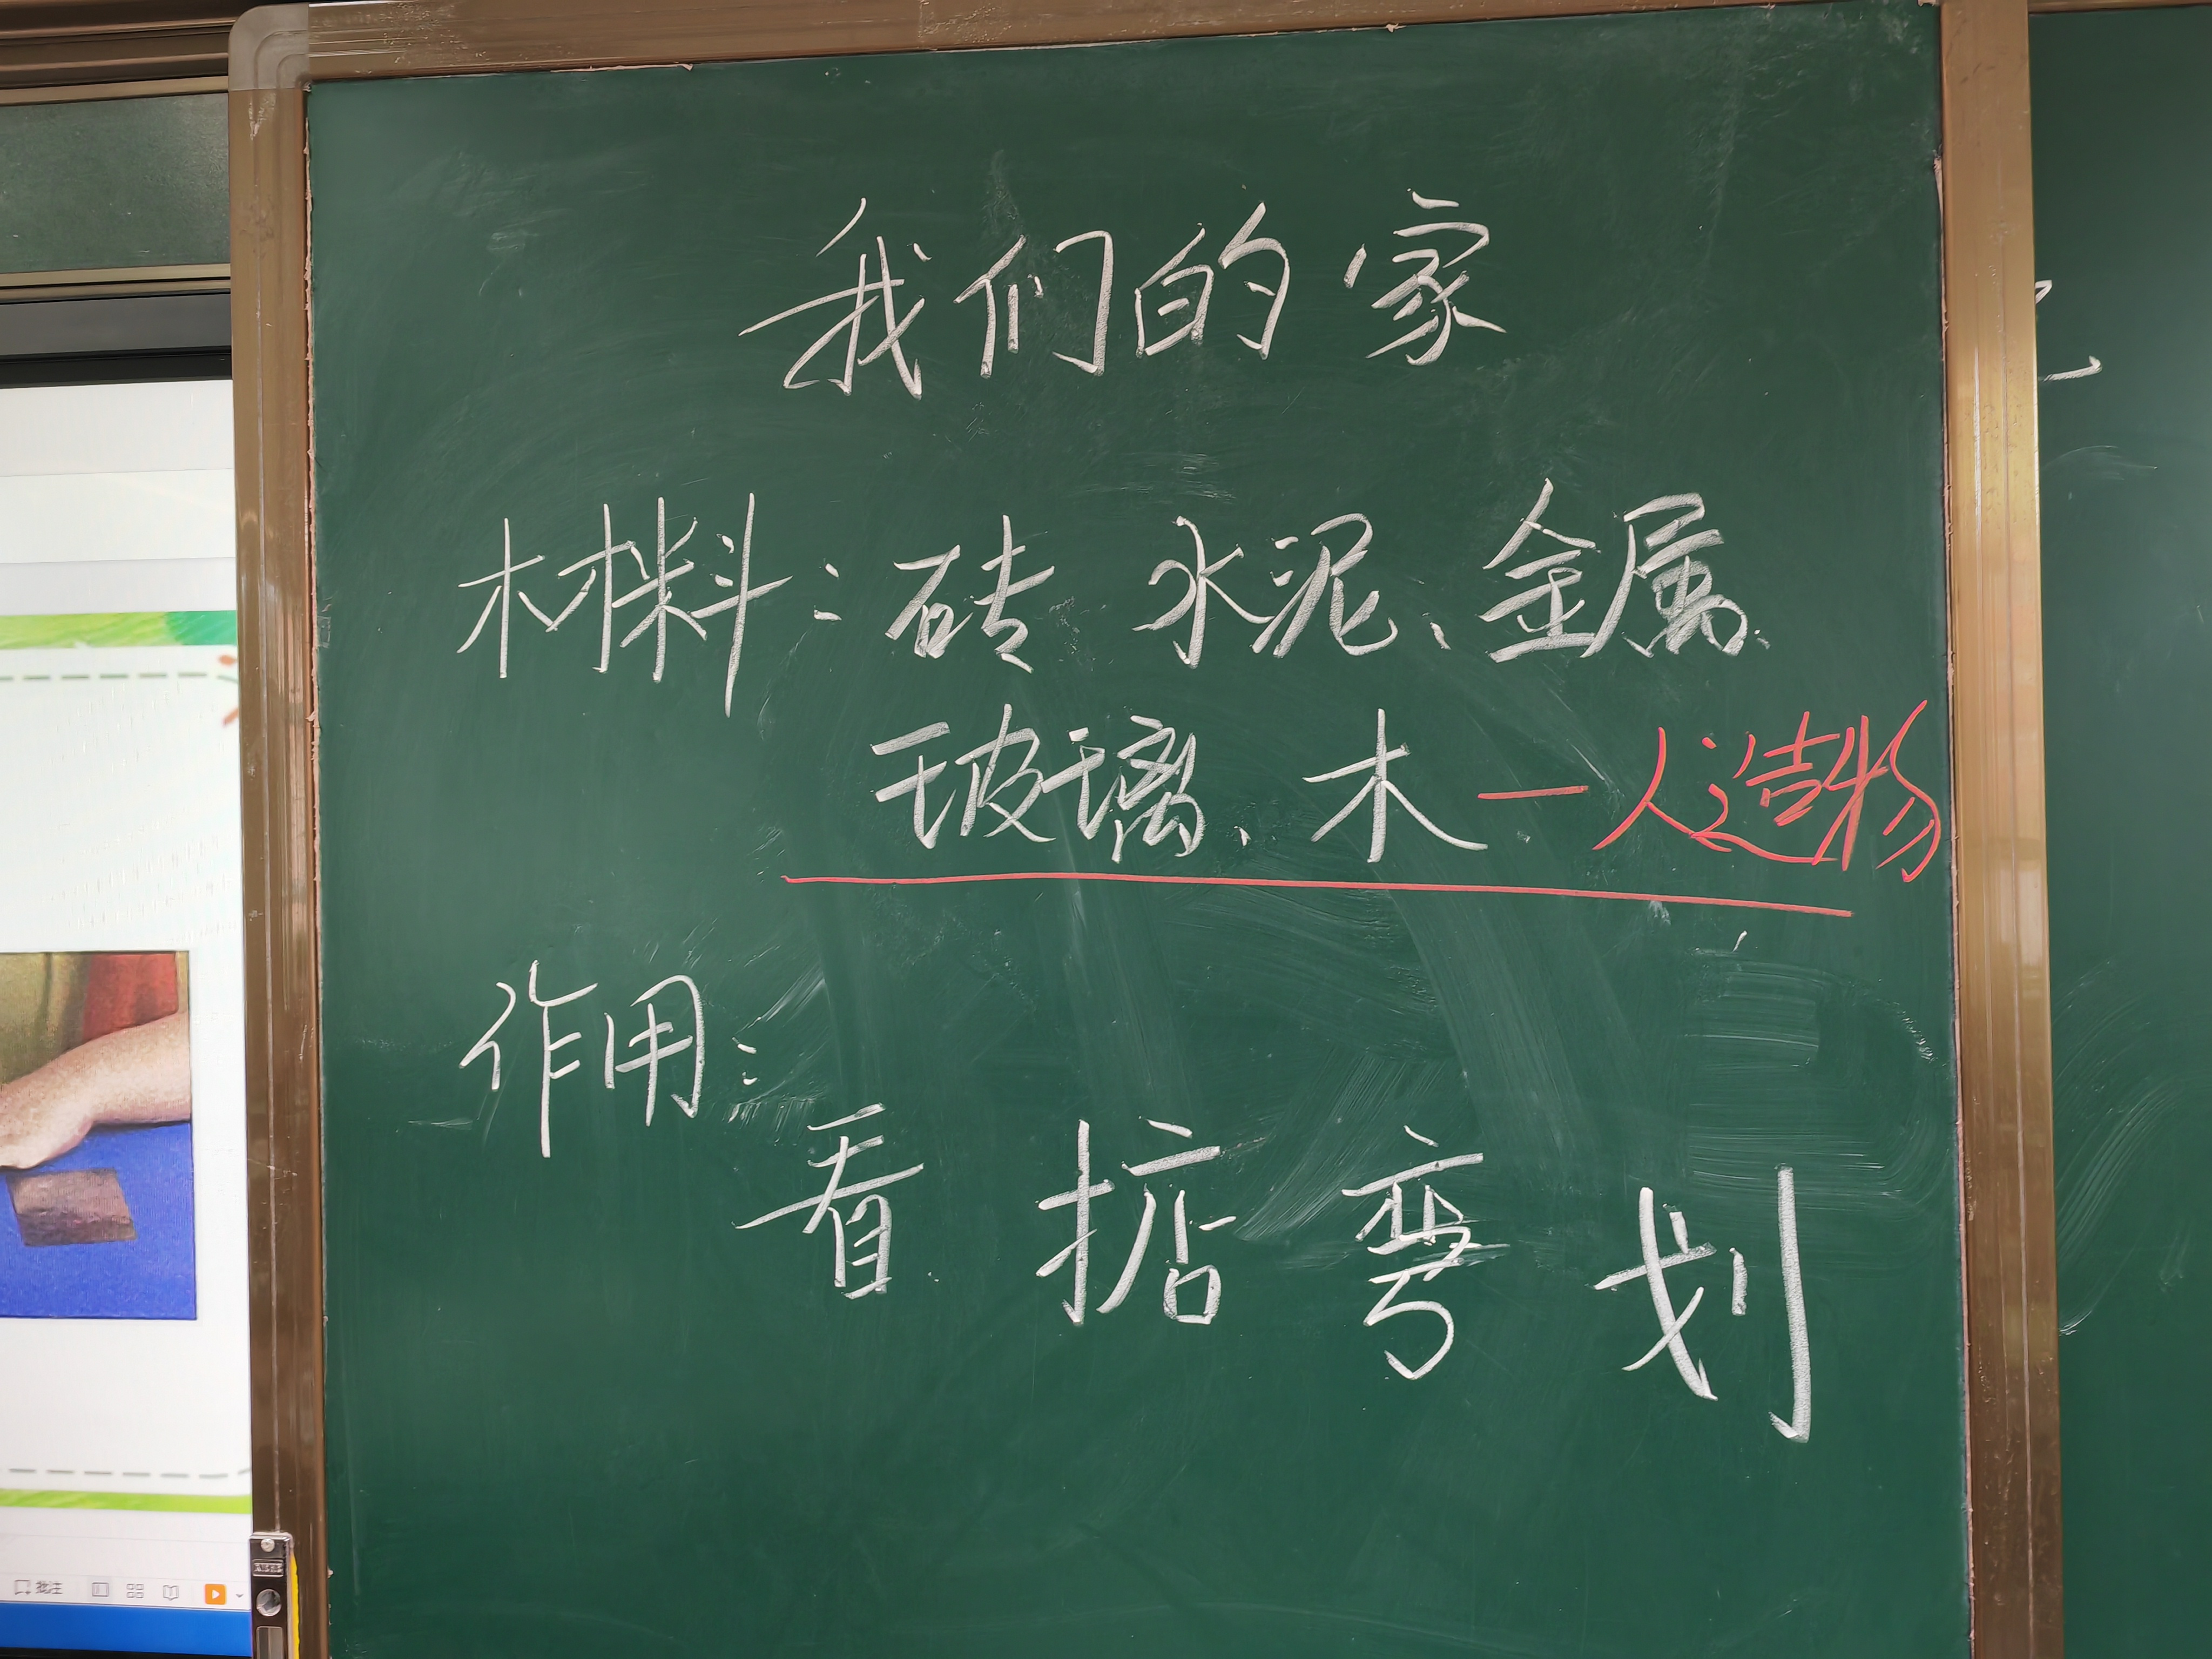 我们的家
材料：砖 水泥、金属、
玻璃、木 — 人造物
作用：
看 掂 弯 划
批注